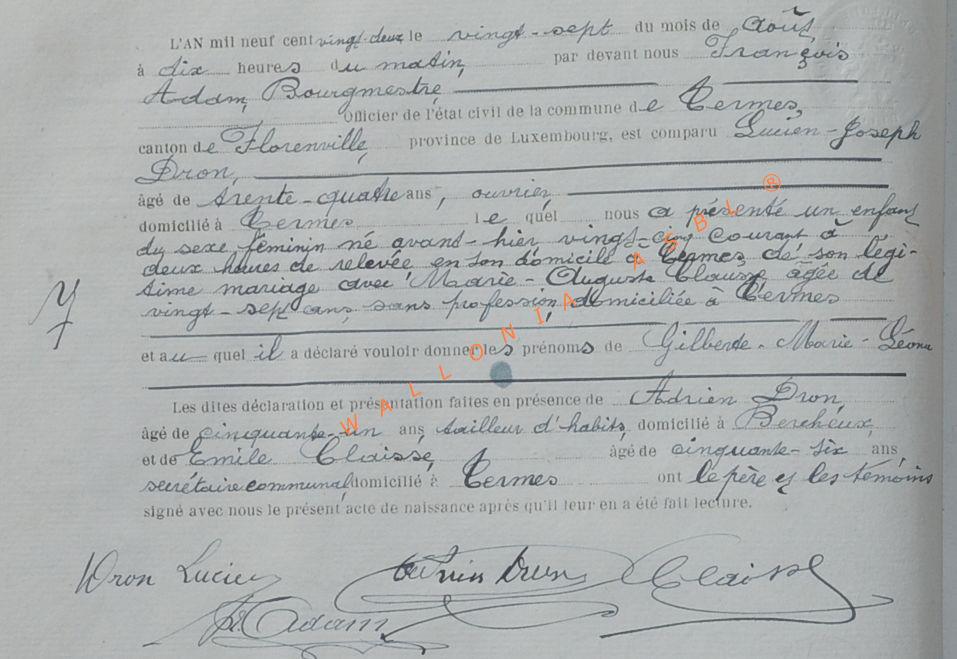 L'AN mil neuf cent vingt-deux le vingt-sept du mois de août
à dix heures du matin, par devant nous François
Adam, Bourgmestre,
Officier de l'état civil de la commune de Termes,
canton de Florenville, province de Luxembourg, est comparu Lucien-Joseph
Dron,
âgé de trente-quatre ans, ouvrier,
domicilié à Termes lequel nous a présenté un enfant
du sexe féminin né avant-hier vingt-cinq courant à
deux heures de relevée en son domicile à Termes, de son légi-
time mariage avec Marie-Augusta Clausse, agée de
vingt-sept ans, sans profession, domiciliée à Termes
et au quel il a déclaré vouloir donner les prénoms de Gilberte-Marie-Léonie
Les dites déclaration et présentation faites en présence de Adrien Dron,
âgé de cinquante-un ans, tailleur d'habits, domicilié à Bercheux,
et de Emile Claisse, âgé de cinquante-six ans,
secrétaire communal, domicilié à Termes ont le père et les témoins
signé avec nous le présent acte de naissance après qu'il leur en a été fait lecture.
Dron Lucien Adrien Dron Claisse
Adam
WALLONIA ASBL ®